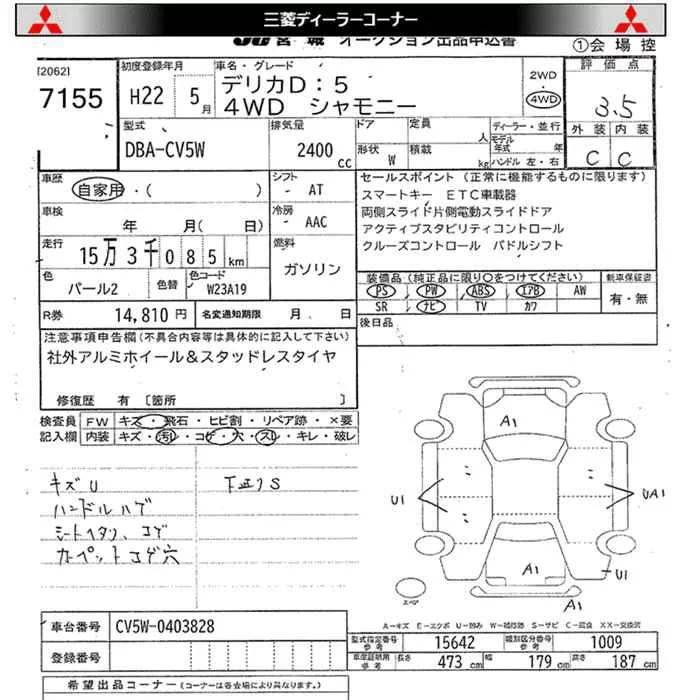 三菱ディーラーコーナー
JU 宮城 オークション出品申込書
①会場控
[2062]
7155
初度登録年月
H22 5月
車名・グレード
デリカD:5
4WD シャモニー
2WD
4WD
評価点
3.5
外装 内装
C C
型式
DBA-CV5W
排気量
2400 cc
ドア
形状 W
定員 人
積載 kg
ディーラー・並行
モデル年式 年
ハンドル 左・右
車歴
自家用・( )
シフト
- AT
車検
年 月( 日)
冷房
- AAC
走行
15万3千085km
燃料
ガソリン
色
パール2
色替
色コード
W23A19
R券
14,810円
名変通知期限 月 日
セールスポイント (正常に機能するものに限ります)
スマートキー ETC車載器
両側スライド片側電動スライドドア
アクティブスタビリティコントロール
クルーズコントロール パドルシフト
装備品 (純正品に限り○をつけてください)
PS PW ABS エアB AW
SR ナビ TV カワ
新車保証書
有・無
後日品
注意事項申告欄(不具合内容等は具体的に記入して下さい)
社外アルミホイール&スタッドレスタイヤ
修復歴 有 〔箇所 〕
検査員記入欄
FW キズ・飛石・ヒビ割・リペア跡・×要
内装 キズ・汚レ・コゲ・穴・スレ・キレ・破レ
キズU
ハンドルハゲ
シートヘタリ、コゲ
カーペットコゲ穴
下廻りS
A1
U1
UA1
A1
U1
A1
スペア
A-キズ E-エクボ U-凹み W-補修跡 S-サビ C-腐食 XX-交換済
車台番号 CV5W-0403828
登録番号
型式指定番号 参考 15642
類別区分番号 参考 1009
車庫証明用 参考
長さ 473cm 幅 179cm 高さ 187cm
希望出品コーナー (コーナーは各会場により異なります。)